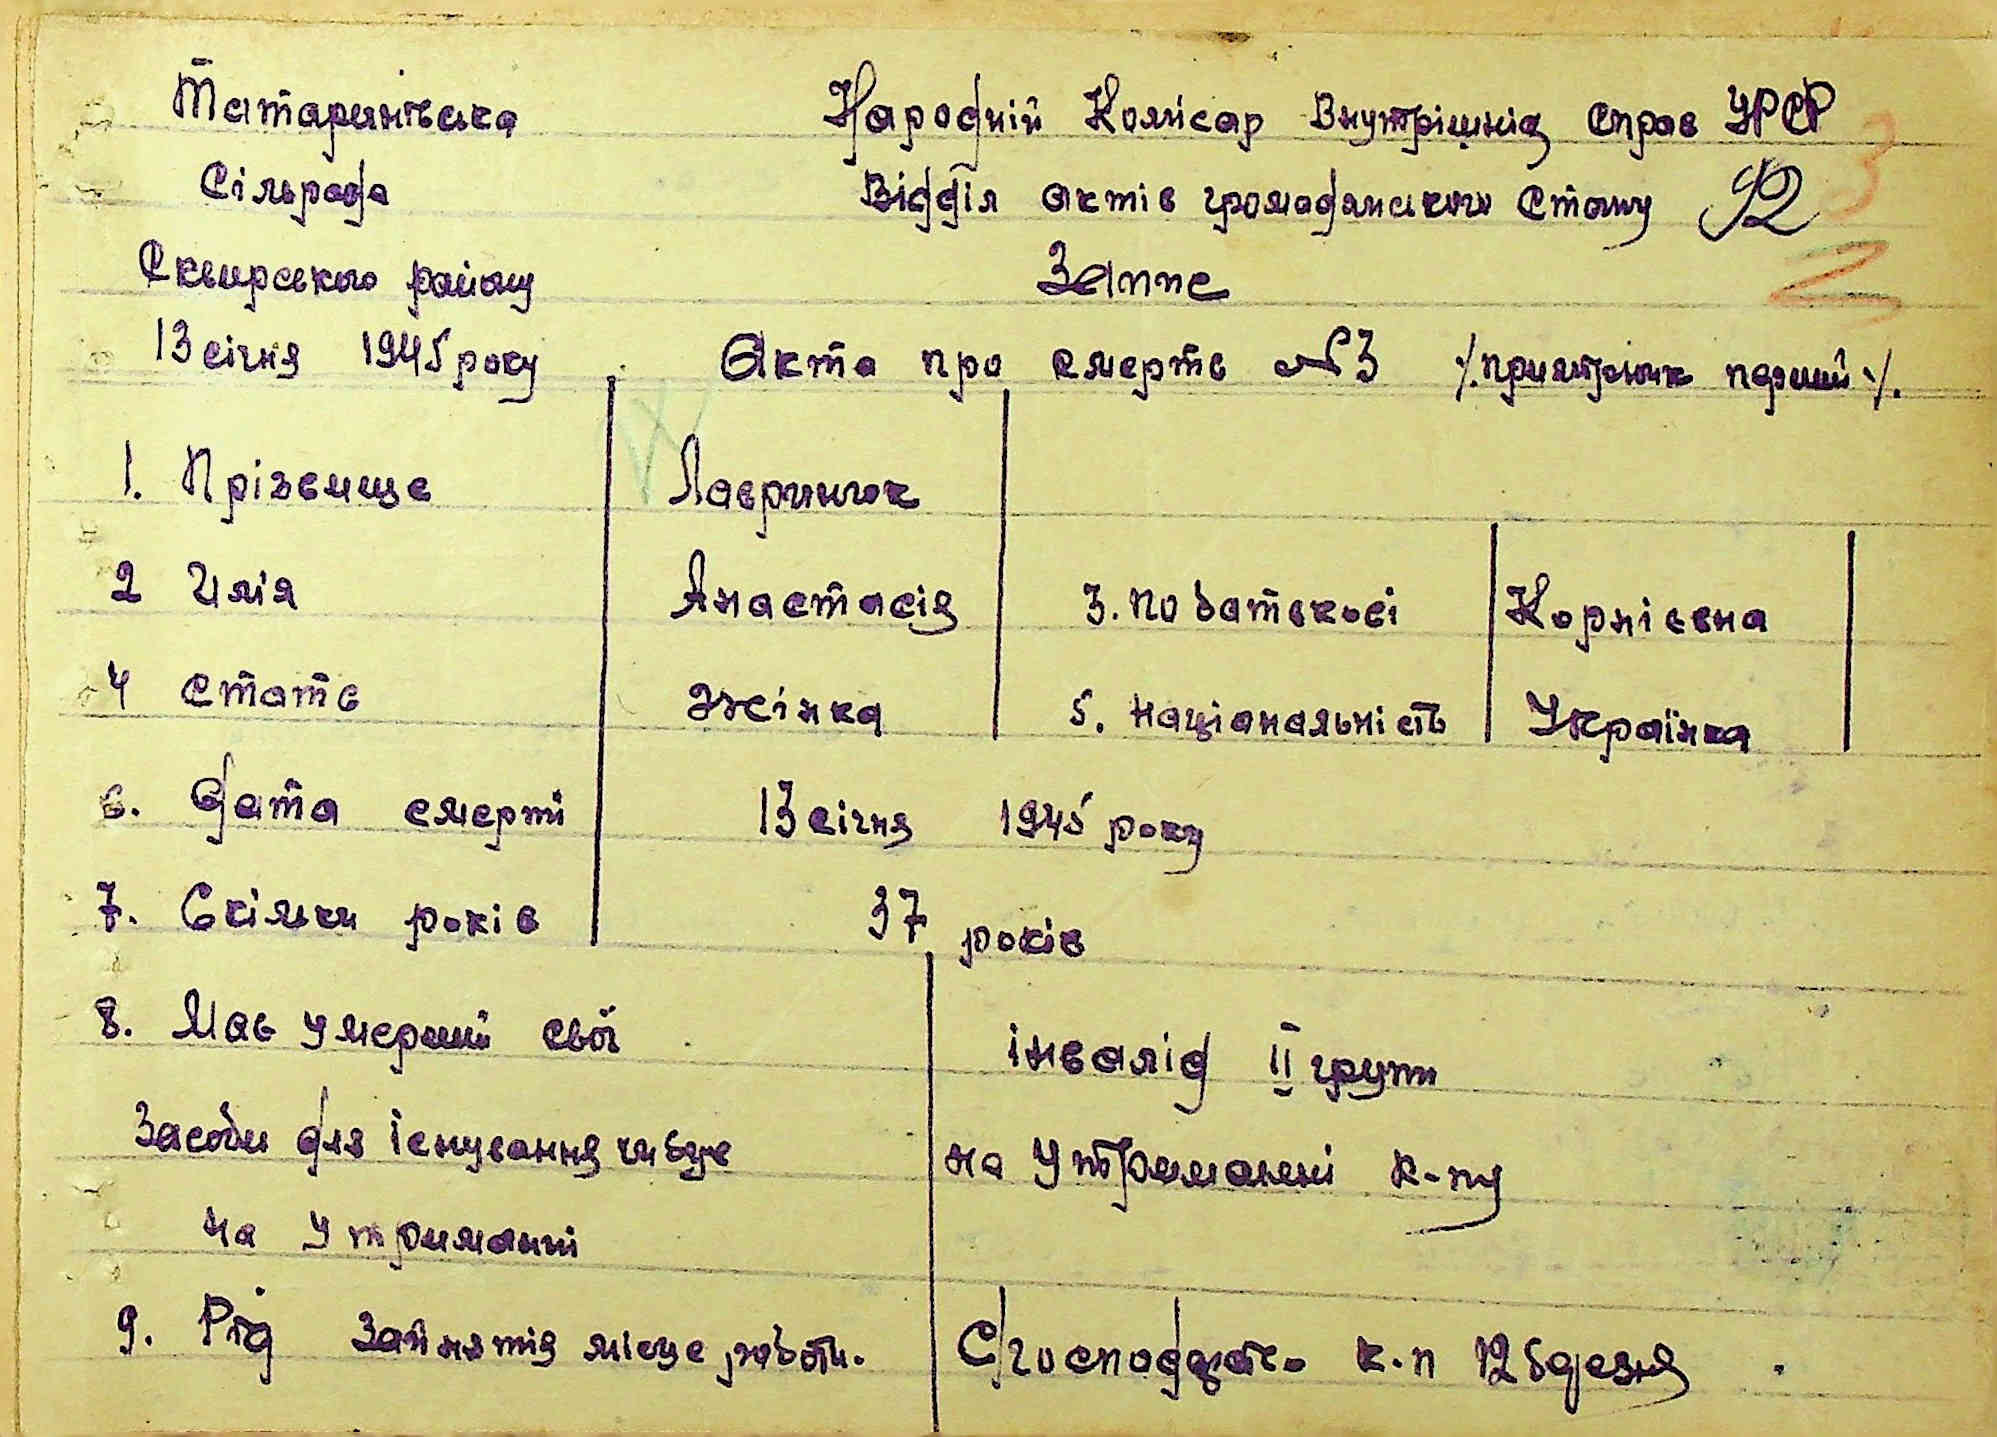 Татаринівська Народній Комісар Внутрішніх справ УРСР
Сільрада Відділ актів громадянського стану 92
Сквирського району Запис
13 січня 1945 року Акта про смерть №3 /.примірник перший./.
1. Прізвище Лавринюк
2 Имія Анастасія 3. по батькові Корніевна
4 стать жінка 5. національність Українка
6. дата смерті 13 січня 1945 року
7. Скільки років 37 років
8. Мав умерший свої інвалід ІІ групи
Засоби для існування чи був на утриманні к-пу
на утриманні
9. Рід зайняття місце роботи. С/господарство к-п 12 березня
3
2